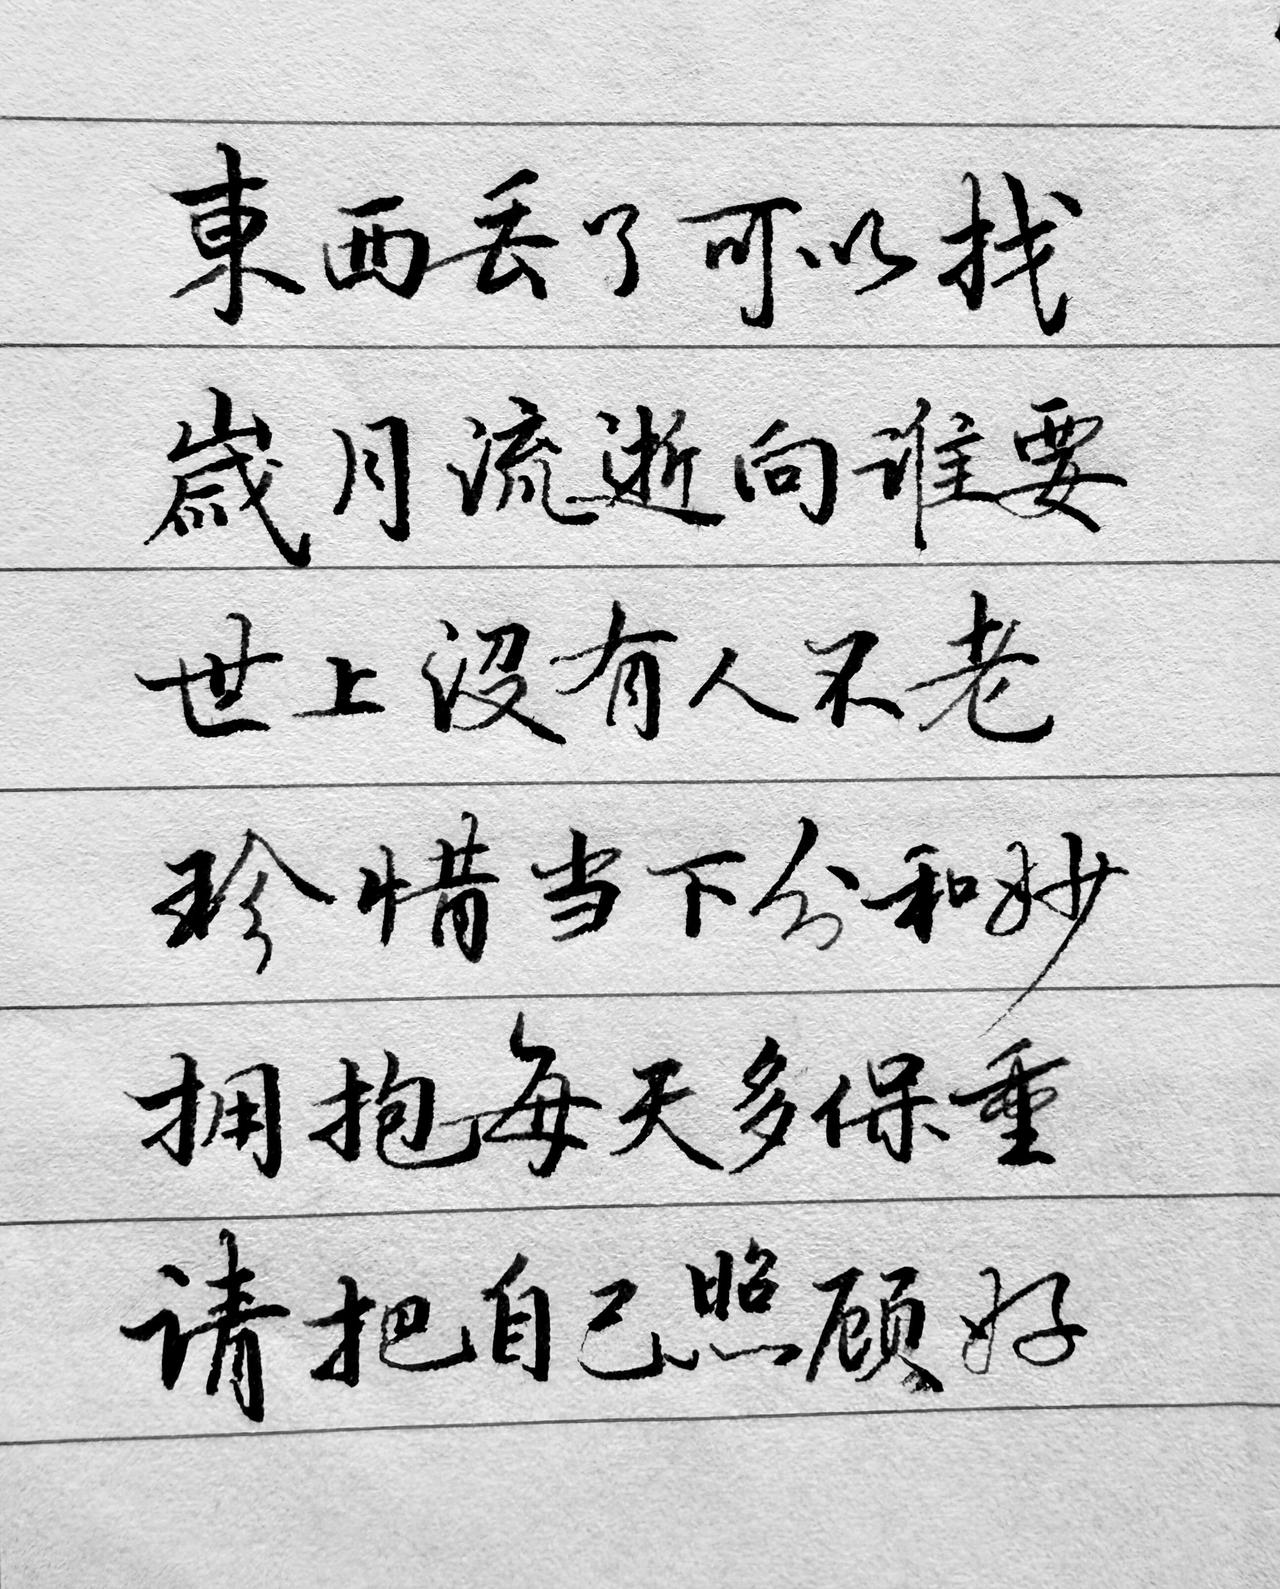 東西丢了可以找
歲月流逝向谁要
世上没有人不老
珍惜当下分和妙
拥抱每天多保重
请把自己照顾好